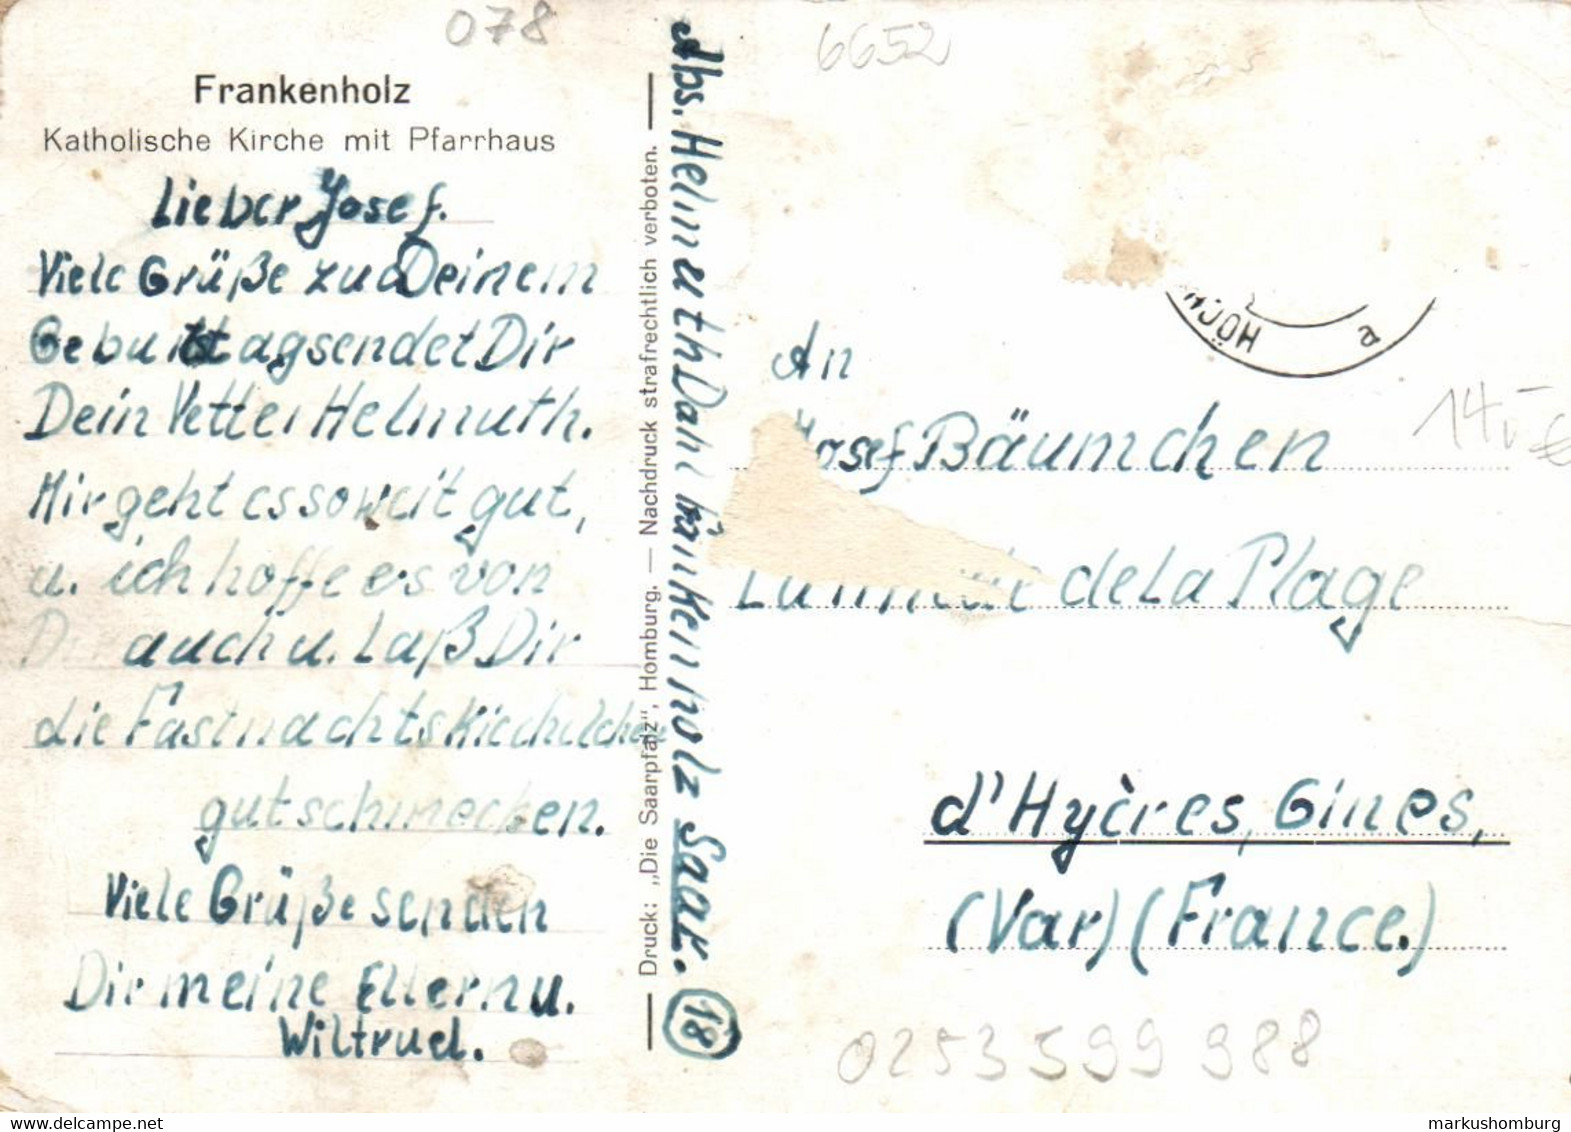 078
6652
Frankenholz
Katholische Kirche mit Pfarrhaus
Lieber Josef.
Viele Grüße zu Deinem
Geburtstag sendet Dir
Dein Vetter Helmuth.
Mir geht es soweit gut,
u. ich hoffe es von
Dir auch u. Laß Dir
die Fastnachtskiechelchen
gut schmecken.
Viele Grüße senden
Dir meine Eltern u.
Wiltrud.
Druck: „Die Saarpfalz", Homburg. — Nachdruck strafrechtlich verboten.
Abs. Helmuth Dahl Frankenholz Saar. (18)
HÖCH
a
An
Josef Bäumchen
14,- €
de La Plage
d'Hyères, Gines,
(Var) (France.)
0253 599 988
delcampe.net
markushomburg